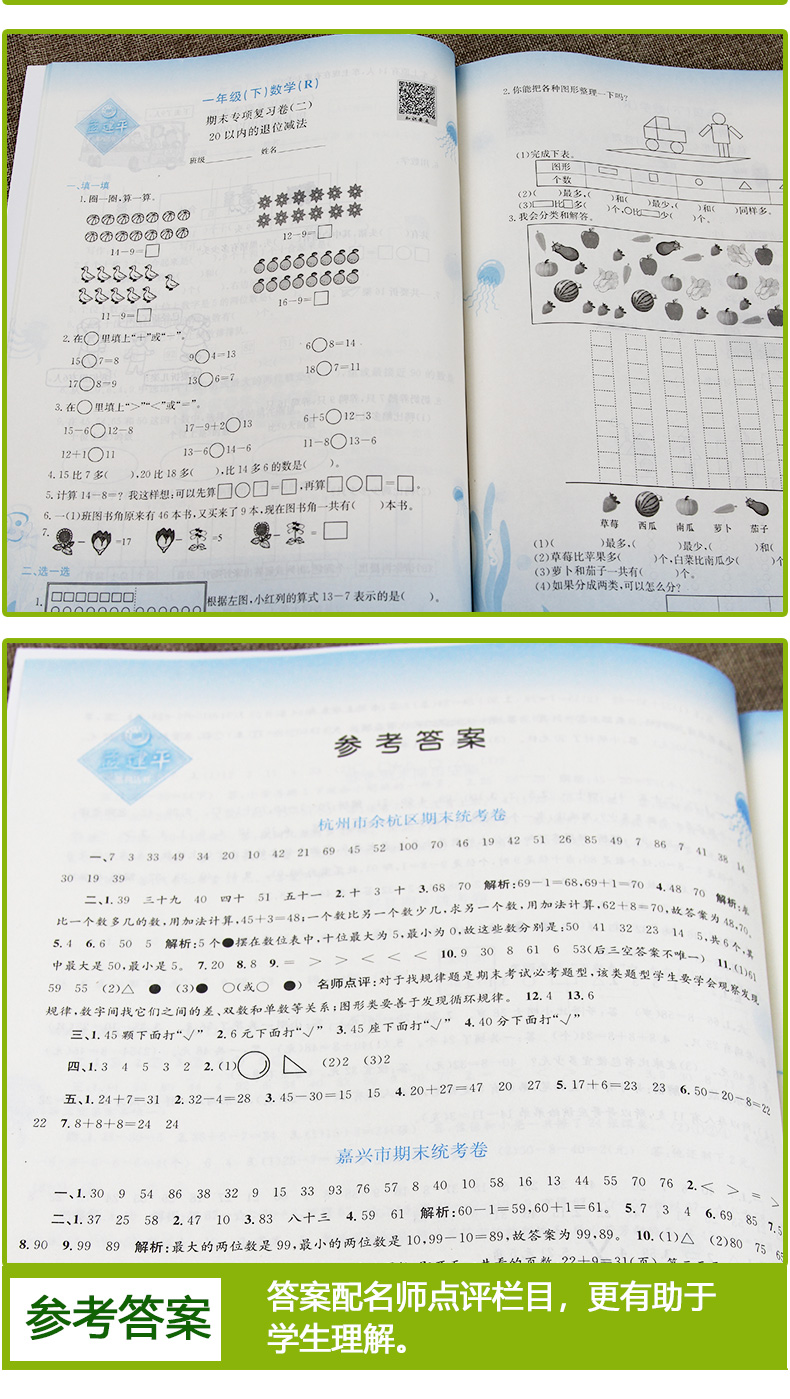 孟建平
一年级(下)数学(R)
期末专项复习卷(二)
20以内的退位减法
知识要点
班级 姓名
一、填一填
1.圈一圈,算一算。
14-9=□
12-9=□
11-9=□
16-9=□
2.在○里填上“+”或“-”。
15○7=8 9○4=13 6○8=14
17○8=9 13○6=7 18○7=11
3.在○里填上“>”“<”或“=”。
15-6○12-8 17-9+2○13 6+5○12-3
12+1○11 13-6○14-6 11-8○13-6
4.15比7多( ),20比18多( ),比14多6的数是( )。
5.计算14-8=? 我这样想:可以先算□○□=□,再算□○□=□。
6.一(1)班图书角原来有46本书,又买来了9本,现在图书角一共有( )本书。
7. - =17 - =5 - =□
二、选一选
1. 根据左图,小红列的算式13-7表示的是( )。
2.你能把各种图形整理一下吗?
(1)完成下表。
图形
个数
(2)( )最多,( )和( )最少,( )和( )同样多。
(3)□比□多( )个,○比□少( )个。
3.我会分类和解答。
草莓 西瓜 南瓜 萝卜 茄子
(1)( )最多,( )最少,( )和(
(2)草莓比苹果多( )个,白菜比南瓜少( )个
(3)萝卜和茄子一共有( )个。
(4)如果分成两类,可以怎么分?
孟建平
参考答案
杭州市余杭区期末统考卷
一、7 3 33 49 34 20 10 42 21 69 45 52 100 70 46 19 42 51 26 85 49 7 86 7 41 38 14
30 19 39
二、1.39 三十九 40 四十 51 五十一 2.十 3 十 3.68 70 解析:69-1=68,69+1=70 4.48 70 解析:求
比一个数多几的数,用加法计算,45+3=48;一个数比另一个数少几,求另一个数,用加法计算,62+8=70,故答案为48,70.
5.4 6.6 50 5 解析:5个●摆在数位表中,十位最大为5,最小为0,故这些数分别是:50 41 32 23 14 5,共6个,其
中最大是50,最小是5。 7.20 8.8 9.= > > < < < 10.9 30 8 61 6 53(后三空答案不唯一) 11.(1)61
59 55 (2)△ ● (3)● ○(或○ ●) 名师点评:对于找规律题是期末考试必考题型,该类题型学生要学会观察发现
规律,数字间找它们之间的差、双数和单数等关系;图形类要善于发现循环规律。 12.4 13.6
三、1.45颗下面打“√” 2.6元下面打“√” 3.45座下面打“√” 4.40分下面打“√”
四、1.3 4 5 3 2 2.(1) (2)2 (3)2
五、1.24+7=31 2.32-4=28 3.45-30=15 15 4.20+27=47 20 27 5.17+6=23 23 6.50-20-8=22
22 7.8+8+8=24 24
嘉兴市期末统考卷
一、1.30 9 54 86 38 32 9 15 33 93 76 57 8 40 10 58 16 13 44 55 70 76 2.< > = >
二、1.37 25 58 2.47 10 3.83 八十三 4.59 61 解析:60-1=59,60+1=61。 5.7 3 4 6.69 85 7.5
8.90 9.99 89 解析:最大的两位数是99,最小的两位数是10,99-10=89,故答案为99,89。 10.(1)△ (2)80 75 65
22+9=31(页)
参考答案
答案配名师点评栏目，更有助于
学生理解。